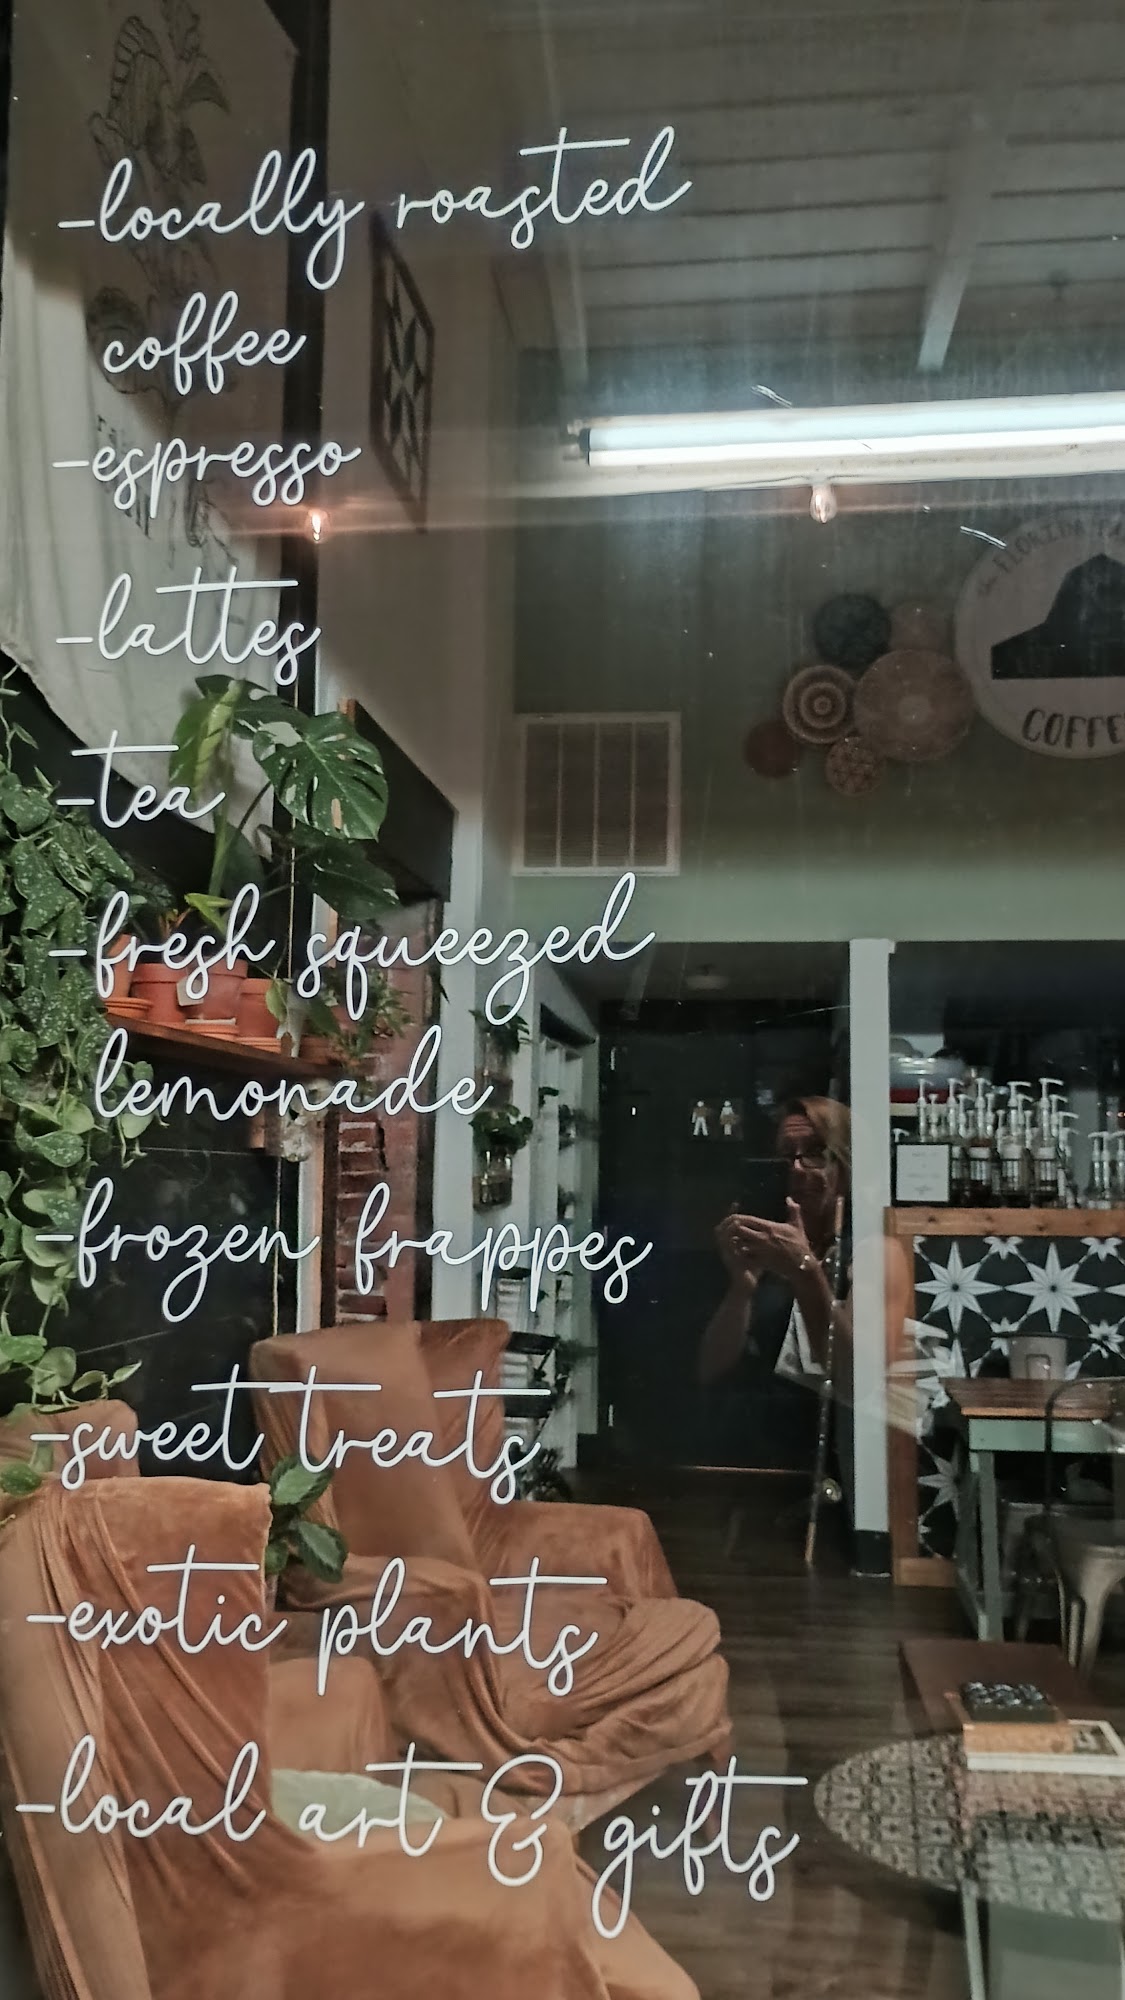 -locally roasted
coffee
-espresso
-lattes
-tea
-fresh squeezed
lemonade
-frozen frappes
-sweet treats
-exotic plants
-local art & gifts
the FLORIDA
COFFE